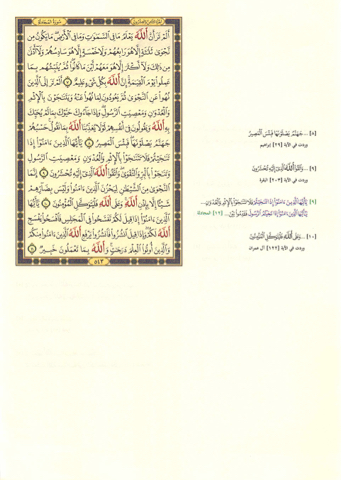 سُورَةُ المُجَادلَة
أَلَمْ تَرَ أَنَّ ٱللَّهَ يَعْلَمُ مَا فِي ٱلسَّمَٰوَٰتِ وَمَا فِي ٱلْأَرْضِ مَا يَكُونُ مِن
نَّجْوَىٰ ثَلَٰثَةٍ إِلَّا هُوَ رَابِعُهُمْ وَلَا خَمْسَةٍ إِلَّا هُوَ سَادِسُهُمْ وَلَآ أَدْنَىٰ
مِن ذَٰلِكَ وَلَآ أَكْثَرَ إِلَّا هُوَ مَعَهُمْ أَيْنَ مَا كَانُوا۟ ثُمَّ يُنَبِّئُهُم بِمَا
عَمِلُوا۟ يَوْمَ ٱلْقِيَٰمَةِ إِنَّ ٱللَّهَ بِكُلِّ شَىْءٍ عَلِيمٌ ٧ أَلَمْ تَرَ إِلَى ٱلَّذِينَ
نُهُوا۟ عَنِ ٱلنَّجْوَىٰ ثُمَّ يَعُودُونَ لِمَا نُهُوا۟ عَنْهُ وَيَتَنَٰجَوْنَ بِٱلْإِثْمِ
وَٱلْعُدْوَٰنِ وَمَعْصِيَتِ ٱلرَّسُولِ وَإِذَا جَآءُوكَ حَيَّوْكَ بِمَا لَمْ يُحَيِّكَ
بِهِ ٱللَّهُ وَيَقُولُونَ فِىٓ أَنفُسِهِمْ لَوْلَا يُعَذِّبُنَا ٱللَّهُ بِمَا نَقُولُ حَسْبُهُمْ
جَهَنَّمُ يَصْلَوْنَهَا فَبِئْسَ ٱلْمَصِيرُ ٨ يَٰٓأَيُّهَا ٱلَّذِينَ ءَامَنُوٓا۟ إِذَا
تَنَٰجَيْتُمْ فَلَا تَتَنَٰجَوْا۟ بِٱلْإِثْمِ وَٱلْعُدْوَٰنِ وَمَعْصِيَتِ ٱلرَّسُولِ
وَتَنَٰجَوْا۟ بِٱلْبِرِّ وَٱلتَّقْوَىٰ وَٱتَّقُوا۟ ٱللَّهَ ٱلَّذِىٓ إِلَيْهِ تُحْشَرُونَ ٩ إِنَّمَا
ٱلنَّجْوَىٰ مِنَ ٱلشَّيْطَٰنِ لِيَحْزُنَ ٱلَّذِينَ ءَامَنُوا۟ وَلَيْسَ بِضَآرِّهِمْ
شَيْـًٔا إِلَّا بِإِذْنِ ٱللَّهِ وَعَلَى ٱللَّهِ فَلْيَتَوَكَّلِ ٱلْمُؤْمِنُونَ ١٠ يَٰٓأَيُّهَا
ٱلَّذِينَ ءَامَنُوٓا۟ إِذَا قِيلَ لَكُمْ تَفَسَّحُوا۟ فِى ٱلْمَجَٰلِسِ فَٱفْسَحُوا۟ يَفْسَحِ
ٱللَّهُ لَكُمْ وَإِذَا قِيلَ ٱنشُزُوا۟ فَٱنشُزُوا۟ يَرْفَعِ ٱللَّهُ ٱلَّذِينَ ءَامَنُوا۟ مِنكُمْ
وَٱلَّذِينَ أُوتُوا۟ ٱلْعِلْمَ دَرَجَٰتٍ وَٱللَّهُ بِمَا تَعْمَلُونَ خَبِيرٌ ١١
٥٤٣
[٨] ... جَهَنَّمَ يَصْلَوْنَهَا فَبِئْسَ ٱلْمَصِيرُ
وردت في الآية [٢٩] إبراهيم
[٩] ... وَٱتَّقُوا۟ ٱللَّهَ ٱلَّذِىٓ إِلَيْهِ تُحْشَرُونَ
وردت في الآية [٢٠٣] البقرة
[٩] يَٰٓأَيُّهَا ٱلَّذِينَ ءَامَنُوٓا۟ إِذَا تَنَٰجَيْتُمْ فَلَا تَتَنَٰجَوْا۟ بِٱلْإِثْمِ وَٱلْعُدْوَٰنِ ...
يَٰٓأَيُّهَا ٱلَّذِينَ ءَامَنُوٓا۟ إِذَا نَٰجَيْتُمُ ٱلرَّسُولَ فَقَدِّمُوا۟ بَيْنَ ... [١٢] المجادلة
[١٠] ... وَعَلَى ٱللَّهِ فَلْيَتَوَكَّلِ ٱلْمُؤْمِنُونَ
وردت في الآية [١٢٢] آل عمران